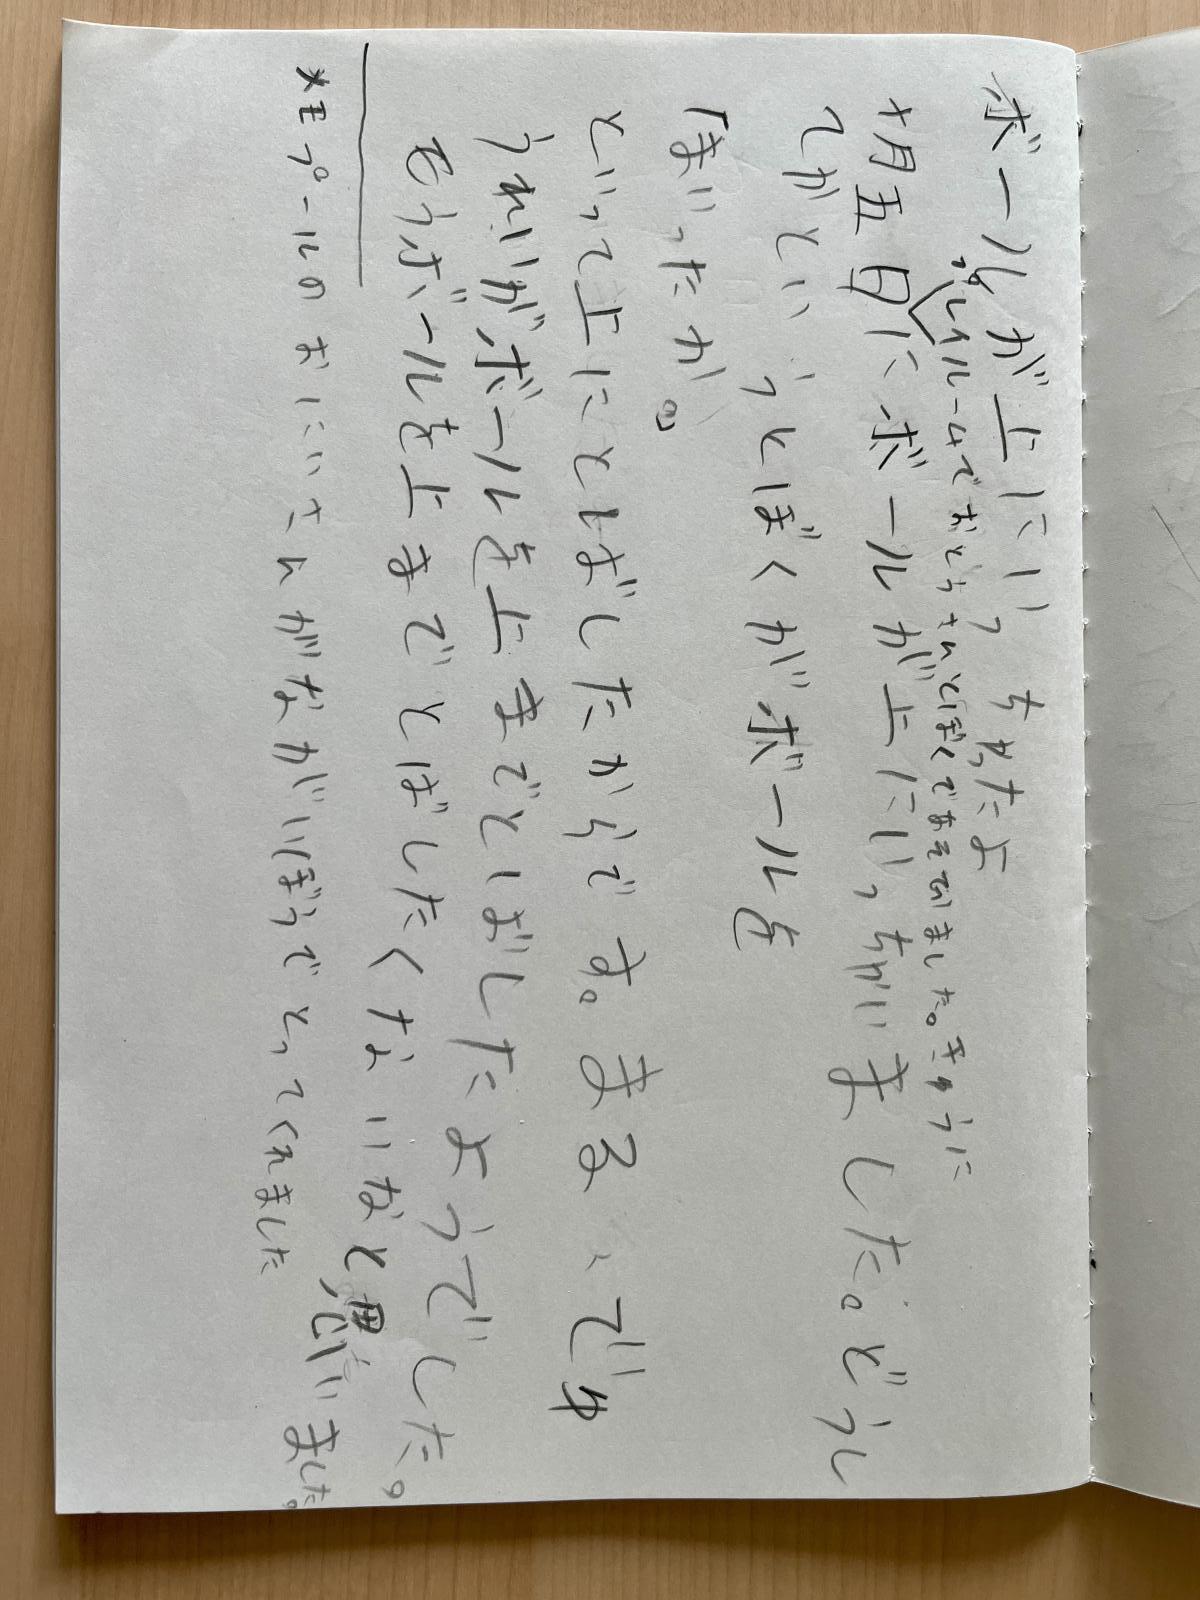 ボールが上にいっちゃったよ
プレイルームでおとうさんとぼくであそでいました。きゅうに
十月五日にボールが上にいっちゃいました。どうし
てかというとぼくがボールを
「まいったか。」
といって上にとばしたからです。まる、でゆ
うれいがボールを上までとばしたようでした。
もうボールを上までとばしたくないなと思いました。
メモプールのおにいさんがながいぼうでとってくれました